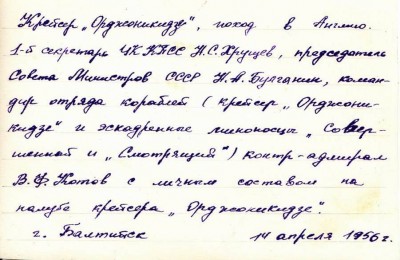 Крейсер „Орджоникидзе", поход в Англию.
1-й секретарь ЦК КПСС Н.С.Хрущев, председатель
Совета Министров СССР Н.А.Булганин, коман-
дир отряда кораблей (крейсер „Орджони-
кидзе" и эскадренные миноносцы „Совер-
шенный и „Смотрящий") контр-адмирал
В.Ф.Котов с личным составом на
палубе крейсера „Орджоникидзе".
г. Балтийск 14 апреля 1956 г.